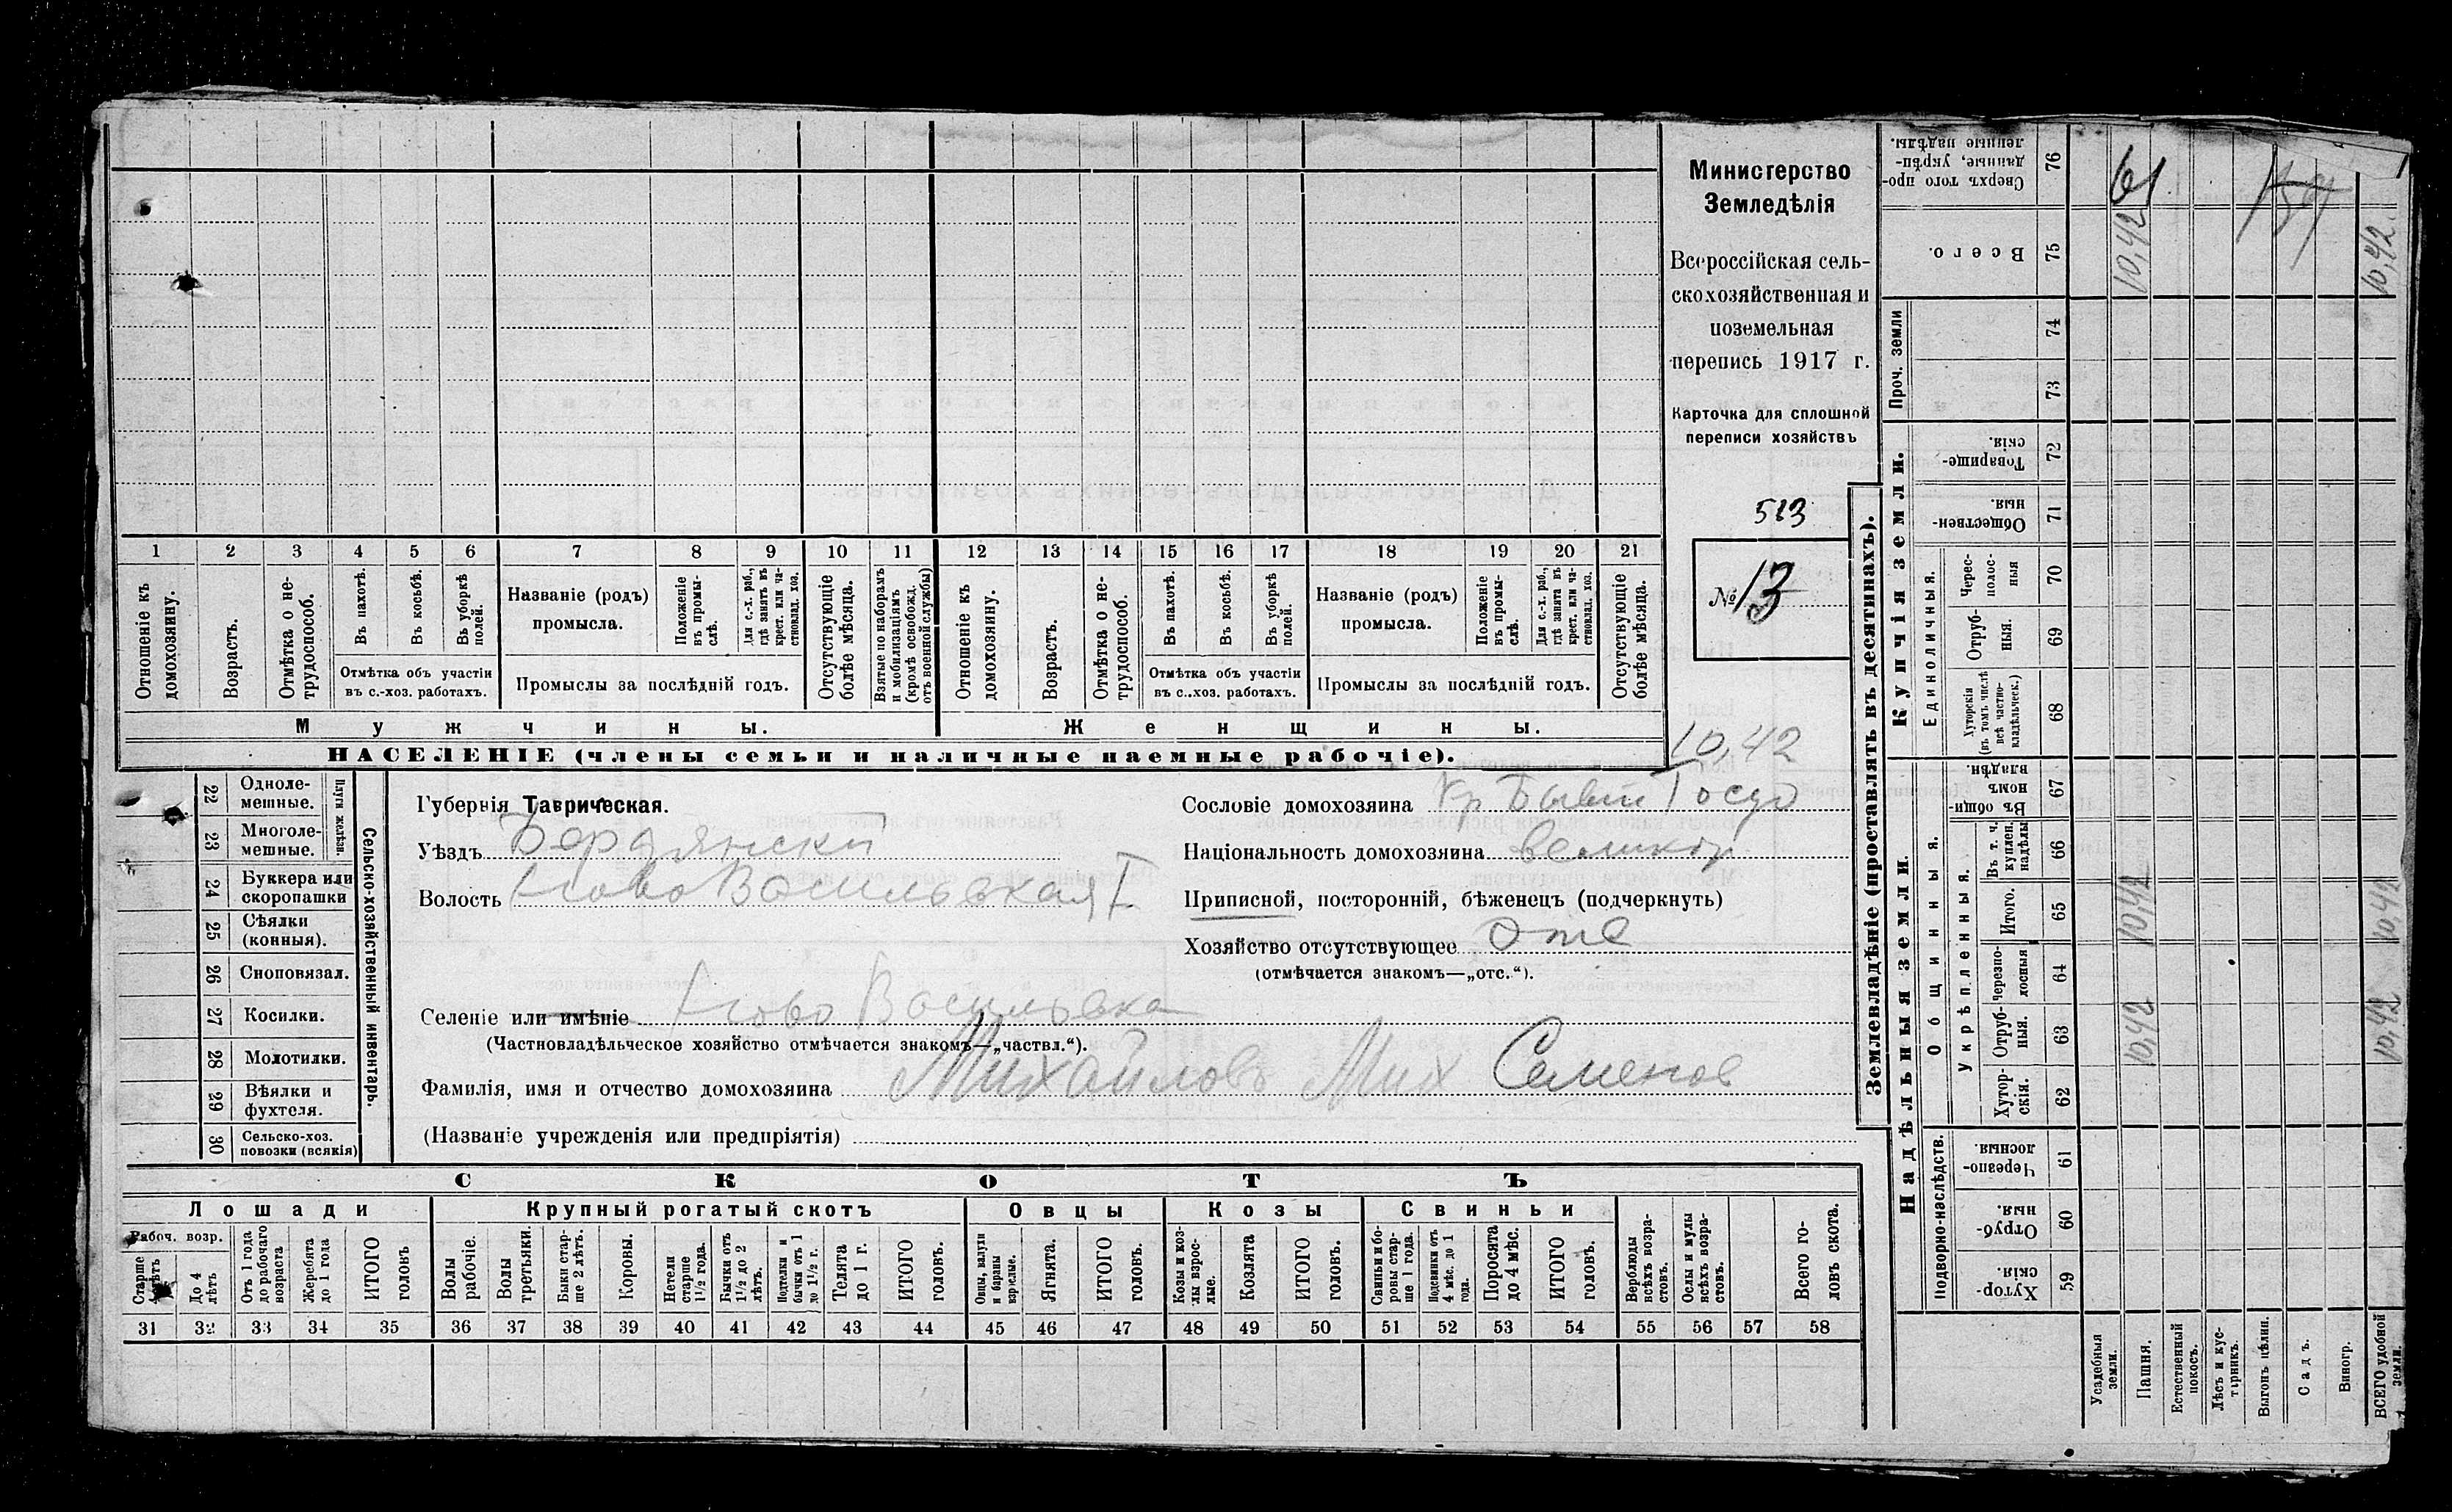 Министерство
Земледѣлія
Всероссійская сель-
скохозяйственная и
поземельная
перепись 1917 г.
Карточка для сплошной
переписи хозяйствъ
513
№ 13
10,42
1 2 3 4 5 6 7 8 9 10 11 12 13 14 15 16 17 18 19 20 21
Отношеніе къ домохозяину.
Возрастъ.
Отмѣтка о не-трудоспособ.
Въ пахотѣ.
Въ косьбѣ.
Въ уборкѣ полей.
Отмѣтка объ участіи
въ с.-хоз. работахъ.
Названіе (родъ)
промысла.
Положеніе въ промы-слѣ.
Для с.-х. раб., гдѣ занятъ въ крест. или ча-стновлад. хоз.
Промыслы за послѣдній годъ.
Отсутствующіе болѣе мѣсяца.
Взятые по наборамъ и мобилизаціямъ (кромѣ освобожд. отъ военной службы)
Отношеніе къ домохозяину.
Возрастъ.
Отмѣтка о не-трудоспособ.
Въ пахотѣ.
Въ косьбѣ.
Въ уборкѣ полей.
Отмѣтка объ участіи
въ с.-хоз. работахъ.
Названіе (родъ)
промысла.
Положеніе въ промы-слѣ.
Для с.-х. раб., гдѣ занята въ крест. или ча-ствовлад. хоз.
Промыслы за послѣдній годъ.
Отсутствующіе болѣе мѣсяца.
Мужчины. Женщины.
НАСЕЛЕНІЕ (члены семьи и наличные наемные рабочіе).
Сельско-хозяйственный инвентарь.
Плуги желѣзн.
22 Одноле-мешные.
23 Многоле-мешные.
24 Буккера или скоропашки
25 Сѣялки (конныя).
26 Сноповязал.
27 Косилки.
28 Молотилки.
29 Вѣялки и фухтеля.
30 Сельско-хоз. повозки (всякія)
Губернія Таврическая.
Уѣздъ Бердянскій
Волость Ново Васильевкая I
Селеніе или имѣніе Ново Васильевка
(Частновладѣльческое хозяйство отмѣчается знакомъ—„частвл.“).
Фамилія, имя и отчество домохозяина Михайловъ Мих Семенов
(Названіе учрежденія или предпріятія)
Сословіе домохозяина Кр Бывш Госуд
Національность домохозяина великор
Приписной, посторонній, бѣженецъ (подчеркнуть)
Хозяйство отсутствующее Отс
(отмѣчается знакомъ—„отс.“).
СКОТЪ
Лошади Крупный рогатый скотъ Овцы Козы Свиньи
Рабоч. возр.
Старше 4 лѣтъ
До 4 лѣтъ
Отъ 1 года до рабочаго возраста
Жеребята до 1 года
ИТОГО головъ
Волы рабочіе.
Волы третьяки.
Быки стар-ше 2 лѣтъ.
Коровы.
Нетели старше 1½ года.
Бычки отъ 1½ до 2 лѣтъ.
Подтелки и бычки отъ 1 до 1½ г.
Телята до 1 г.
ИТОГО головъ.
Овцы, валухи и бараны взрослые.
Ягнята.
ИТОГО головъ.
Козы и коз-лы взрос-лые.
Козлята
ИТОГО головъ.
Свиньи и бо-ровы стар-ше 1 года.
Подсвинки отъ 4 мѣс. до 1 года.
Поросята до 4 мѣс.
ИТОГО головъ.
Верблюды всѣхъ возра-стовъ.
Ослы и мулы всѣхъ возра-стовъ.
Всего го-ловъ скота.
31 32 33 34 35 36 37 38 39 40 41 42 43 44 45 46 47 48 49 50 51 52 53 54 55 56 57 58
Землевладѣніе (проставлять въ десятинахъ).
Купчія земли.
Надѣльныя земли.
Сверхъ того про-данные, укрѣп-ленные надѣлы. 76 61
Всего. 75 10,42 10,42
Проч. земли 74
73
Товарище-скія. 72
Обществен-ныя. 71
Единоличныя.
Черес-полос-ныя 70
Отруб-ныя. 69
Хуторскія (въ томъ числѣ всѣ частно-владѣльческ.) 68
Общинныя.
Въ общин-номъ владѣн. 67
Укрѣпленныя.
Въ т. ч. куплен. надѣлы 66
Итого. 65 10,42 10,42
Черезпо-лосныя 64
Отруб-ныя. 63 10,42 10,42
Хутор-скія. 62
Подворно-наслѣдств.
Черезпо-лосныя 61
Отруб-ныя 60
Хутор-скія. 59
Усадебныя земли.
Пашня.
Естественный покосъ.
Лѣсъ и кус-тарникъ.
Выгонъ цѣлин.
Садъ.
Виногр.
ВСЕГО удобной земли.